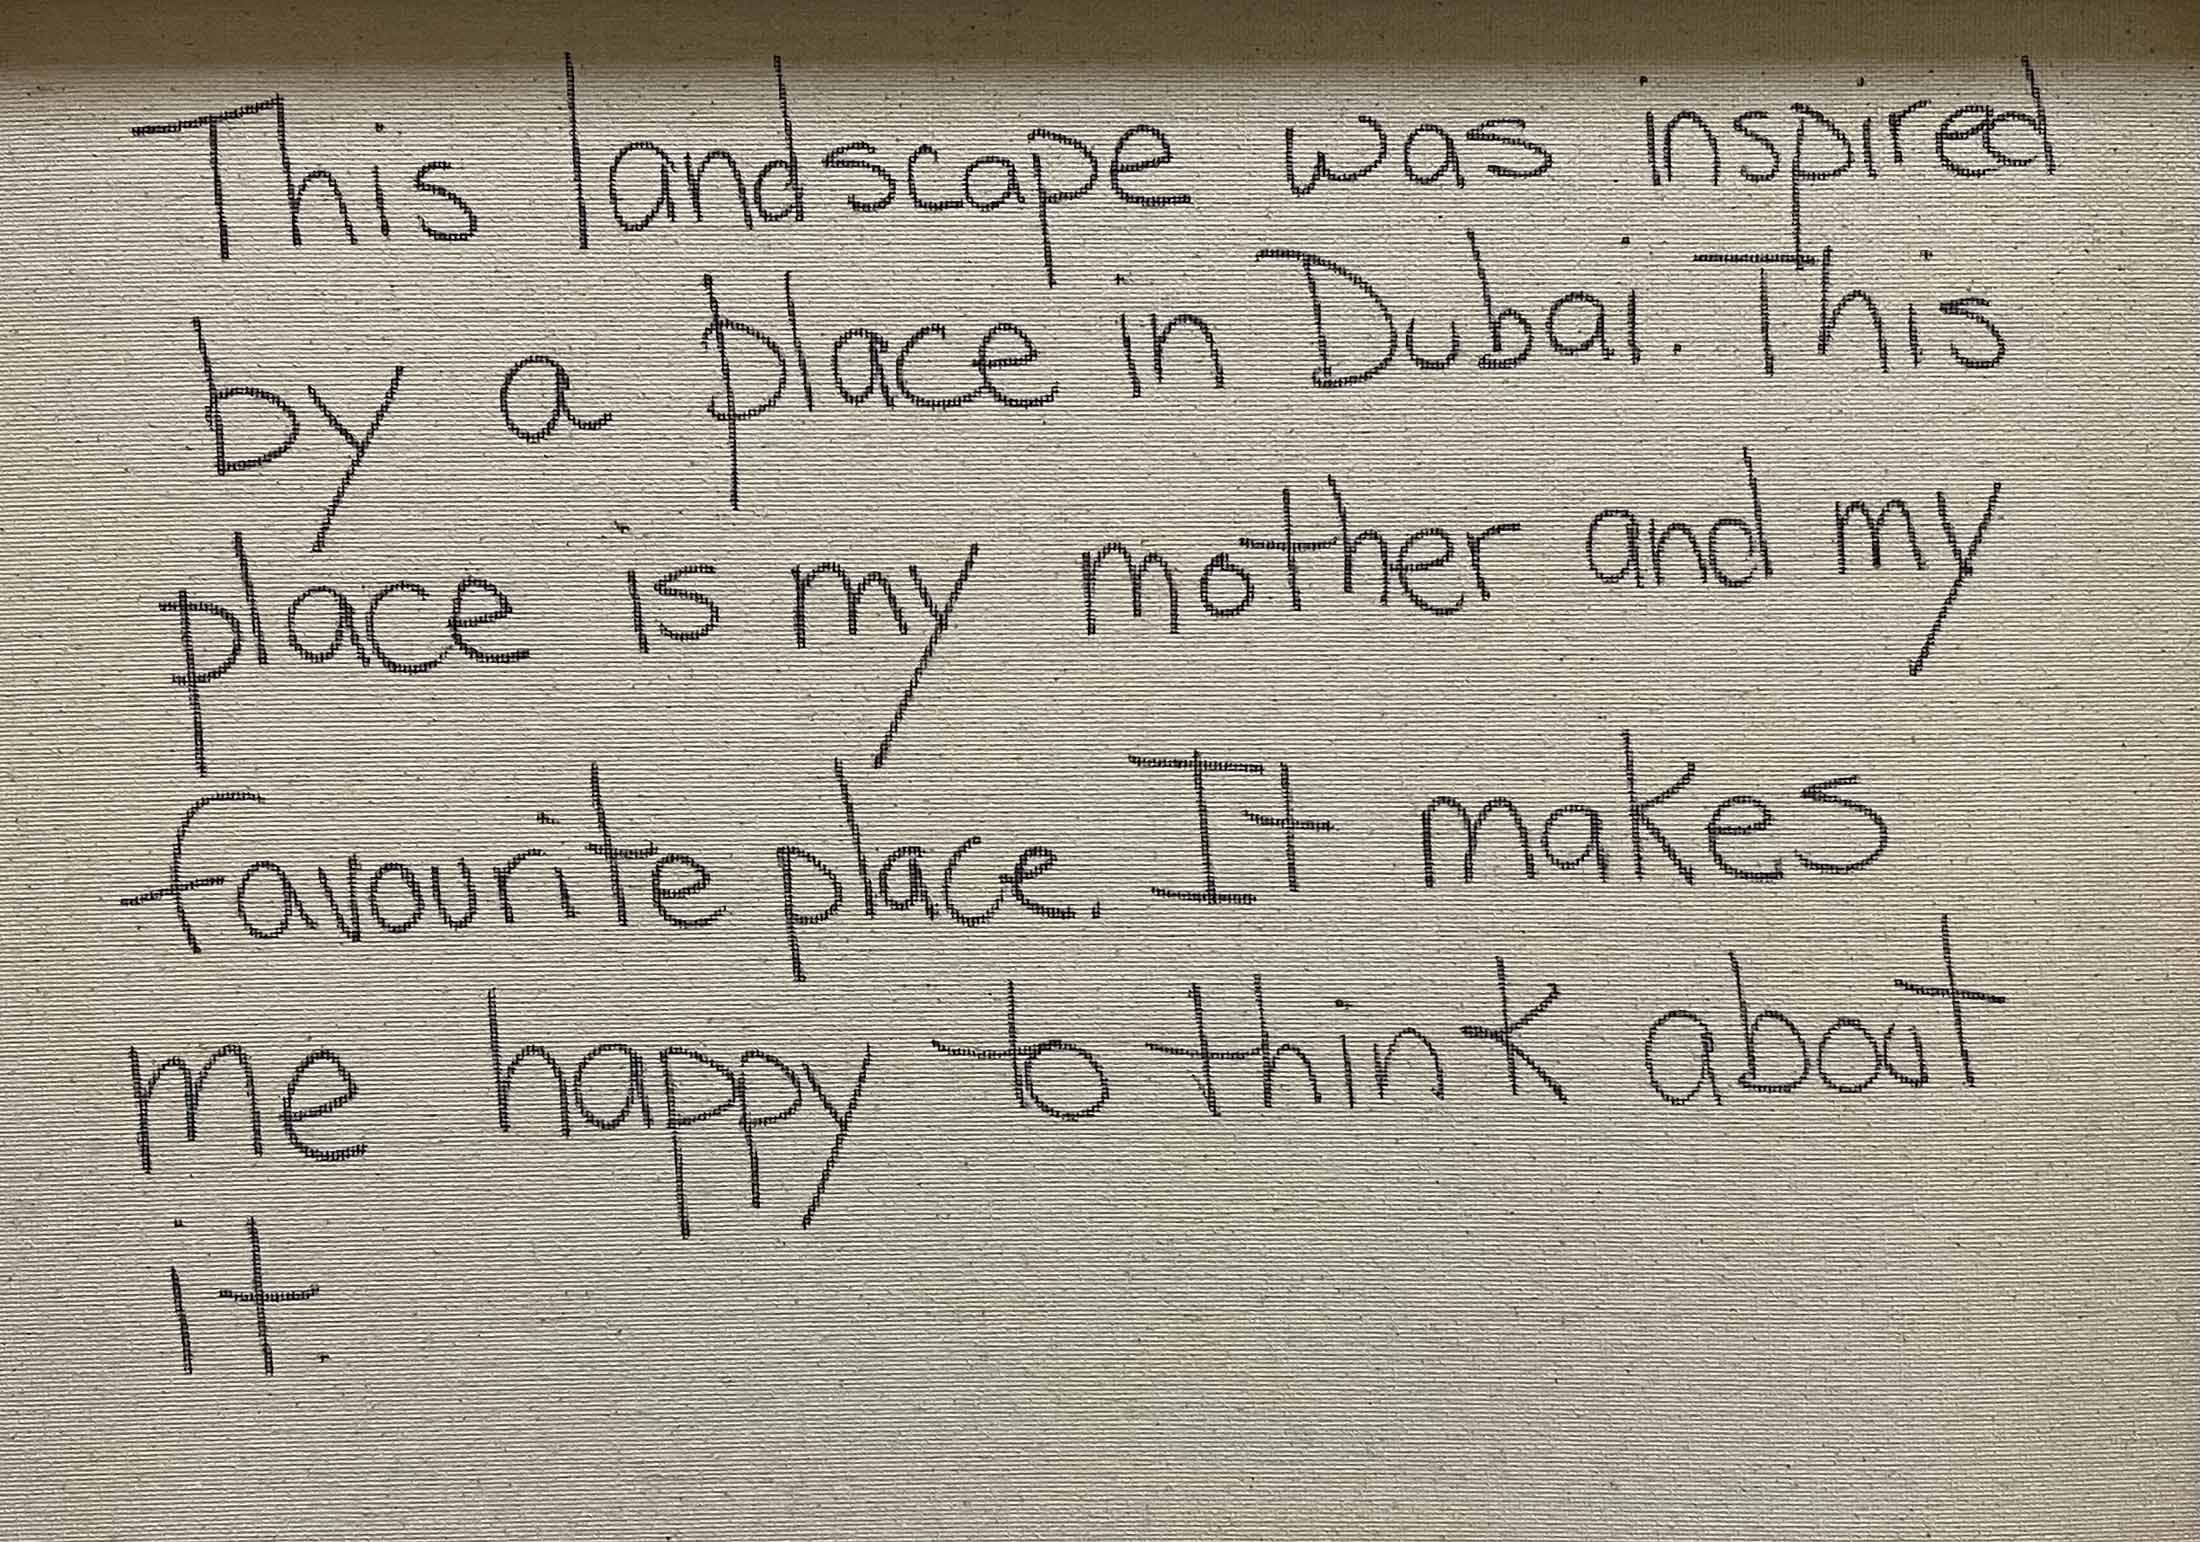 This landscape was inspired
by a place in Dubai. This
place is my mother and my
favourite place. It makes
me happy to think about
it.